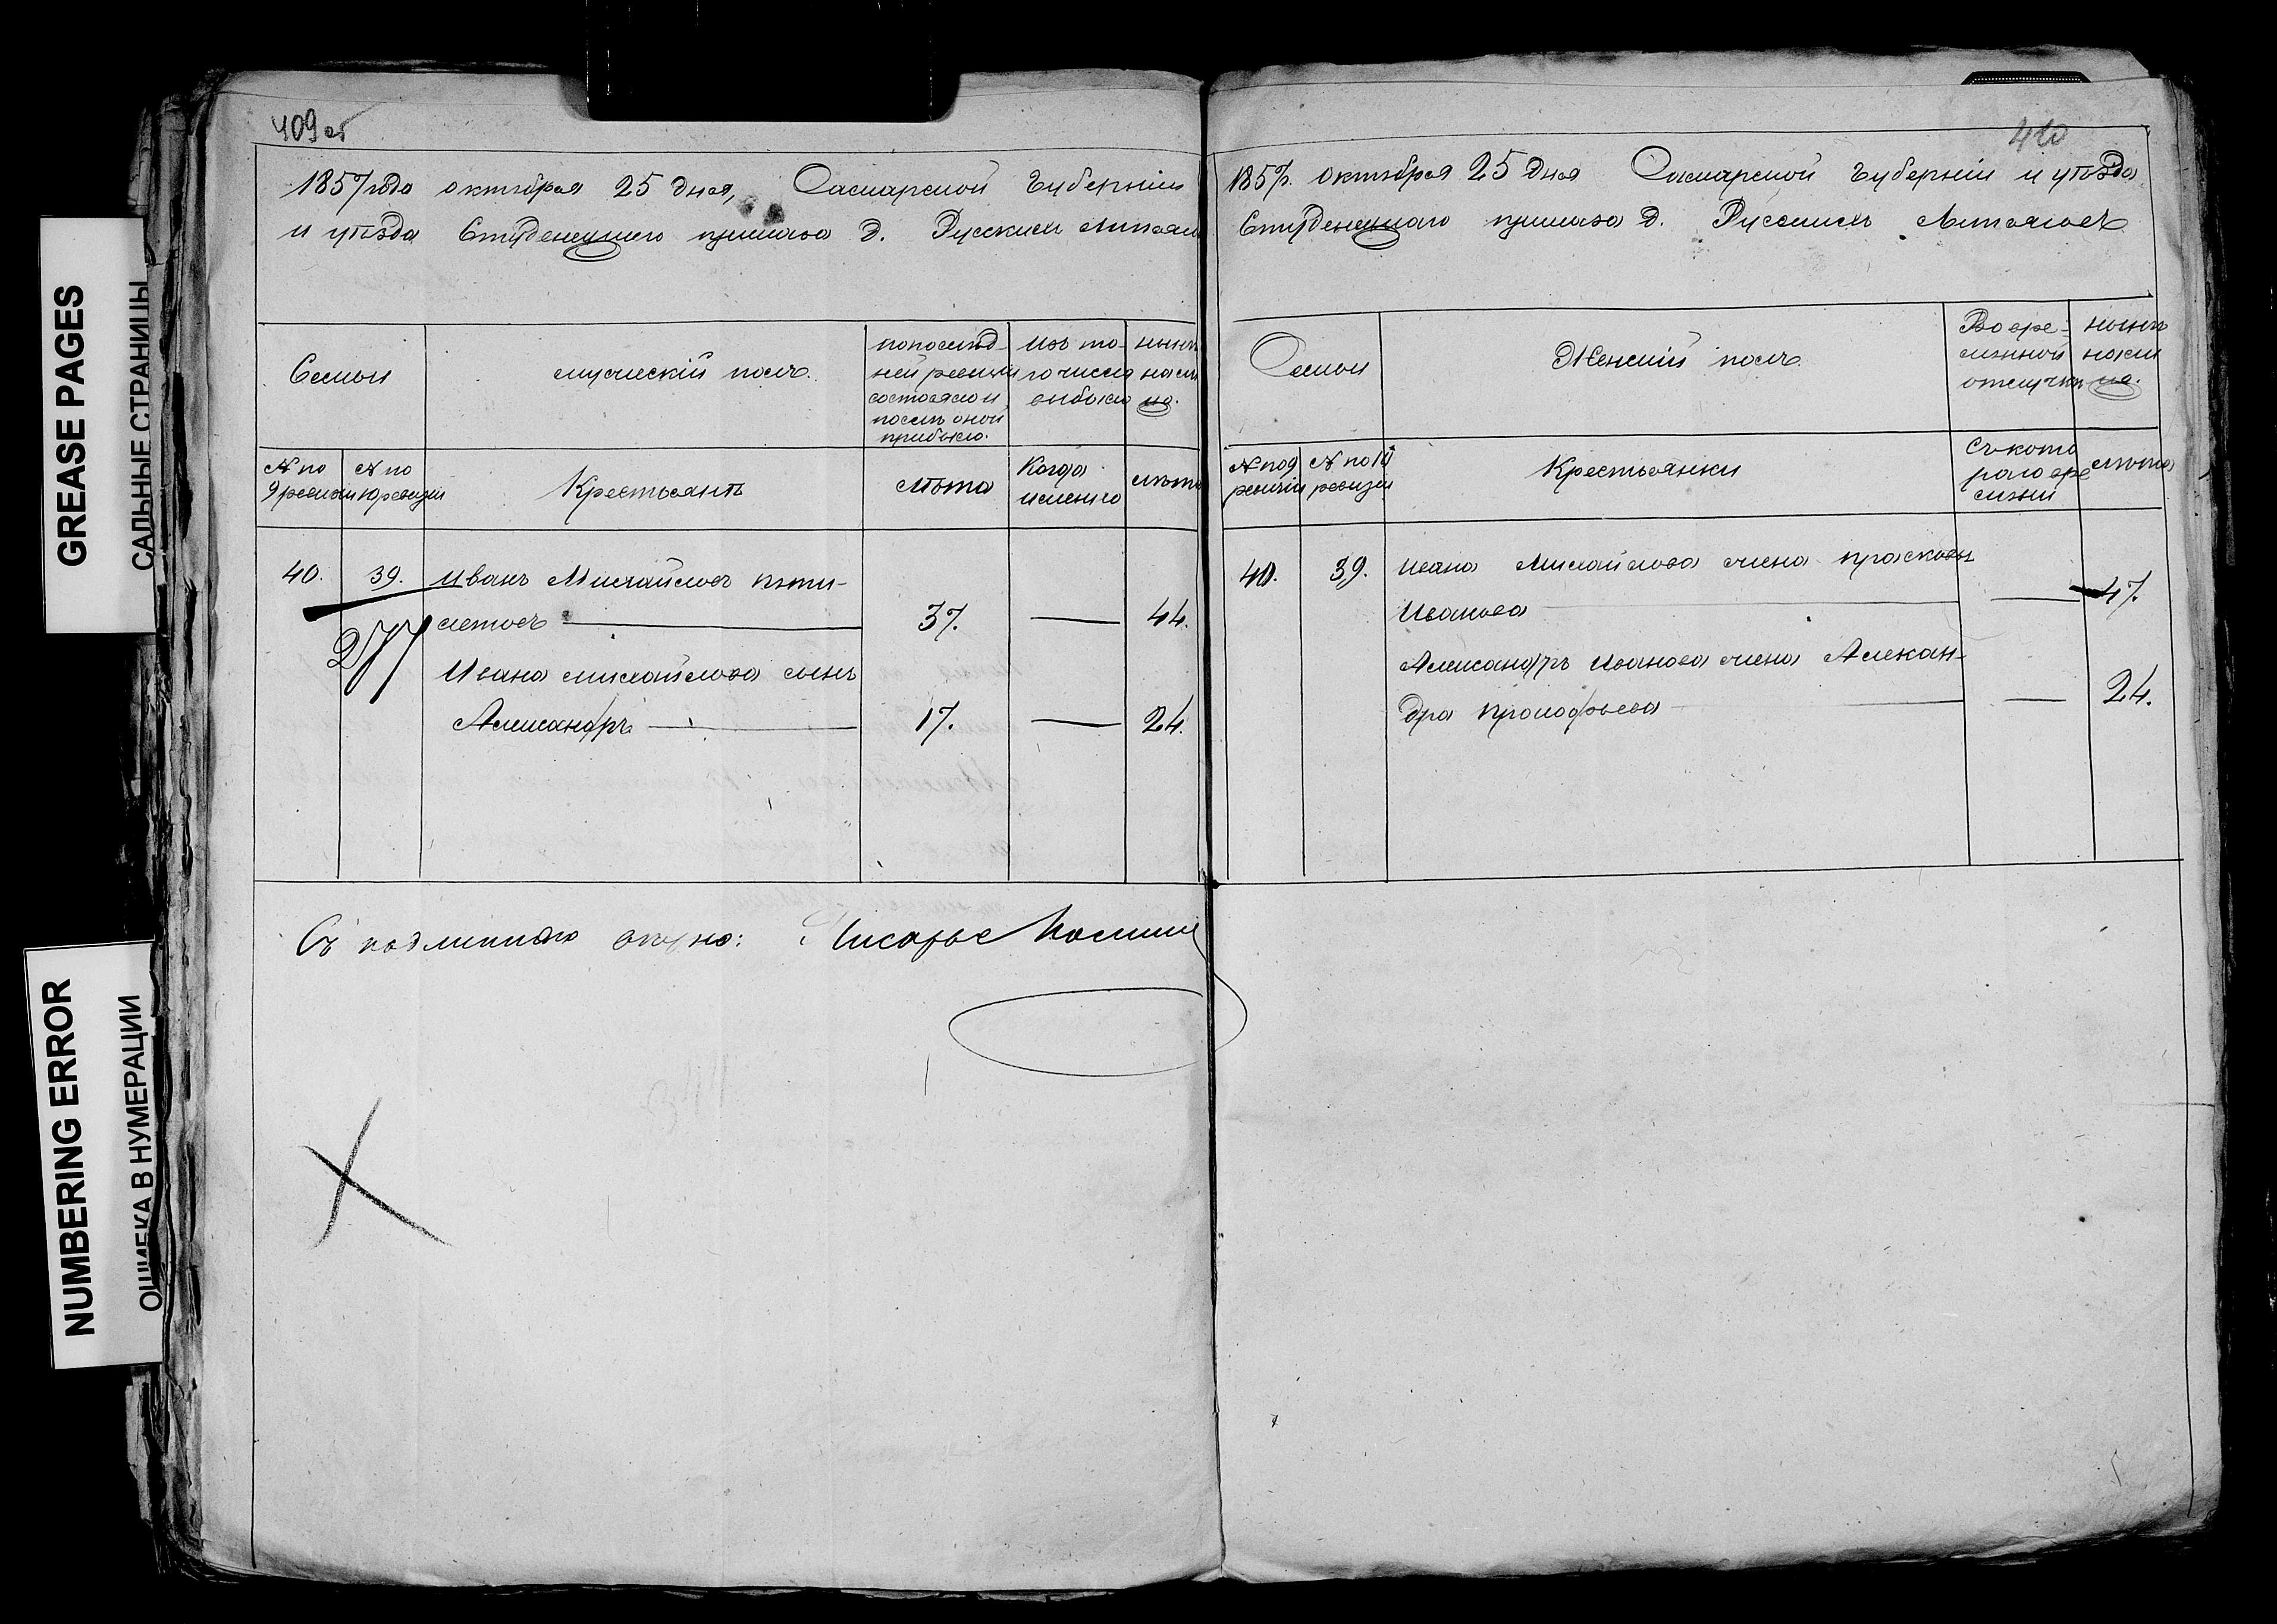 GREASE PAGES
САЛЬНЫЕ СТРАНИЦЫ
NUMBERING ERROR
ОШИБКА В НУМЕРАЦИИ
409 об
1857 года октября 25 дня, Самарской Губернии
и уѣзда Студенецкаго приказа д. Русскихъ
Семьи
мужескій полъ.
попослѣд-
ней ревизіи
состояло и
послѣ оной
прибыло.
изъ то-
го числа
выбыло
нынѣ
на ли
цо.
№ по
9 ревизіи
№ по
10 ревизіи
Крестьянъ
лѣта
Когда
именно
лѣта
40.
39.
Иванъ Михайловъ пяти-
летовъ
37.
44.
277
Ивана михайлова сынъ
Александръ
17.
24.
Съ подлиннымъ вѣрно: Писарь
410
1857г. октября 25 дня Самарской Губерніи и уѣзда
Студенецкаго приказа д. Русскихъ
Семьи
Женскій полъ.
Во вре-
менной
отлучкѣ
нынѣ
на ли
цо.
№ по 9
ревизіи
№ по 10
ревизіи
Крестьянки
съ кото
раго вре
мени
лѣта
40.
39.
Ивана Михайлова жена прасковья
Иванова
47.
Александръ Иванова жена Алексан-
дра прокофьева
24.